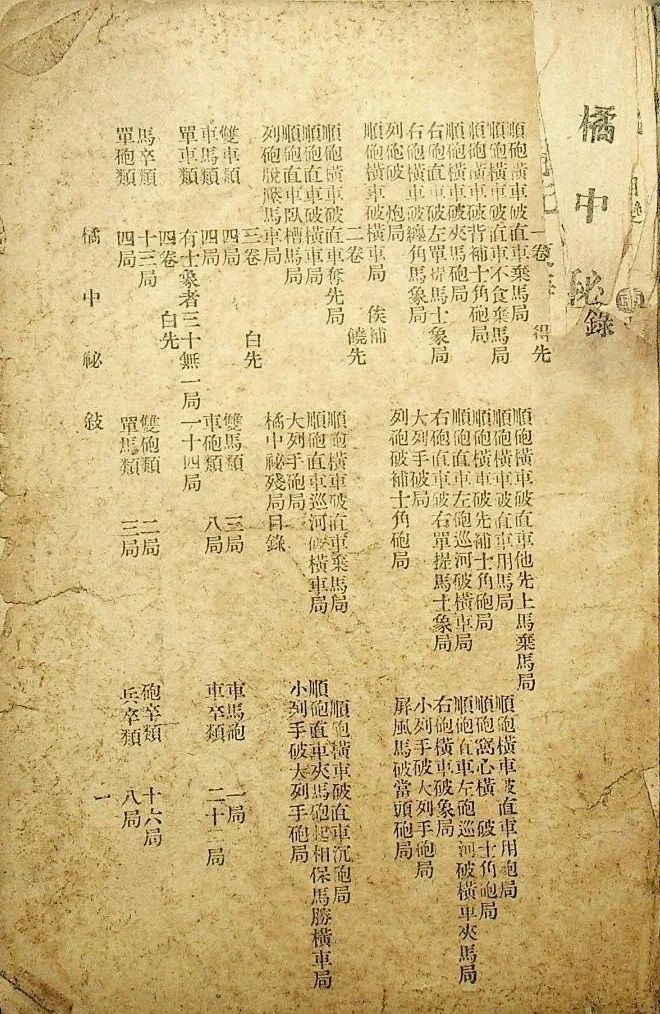 橘中秘錄
一卷 得先
順砲橫車破直車棄馬局 順砲橫車破直車他先上馬棄馬局
順砲橫車破直車不食棄馬局 順砲橫車破直車用馬局 順砲橫車破直車用砲局
順砲直車破背補士角砲局 順砲橫車破先補士角砲局 順砲窩心橫 破士角砲局
順砲橫車破夾馬砲局 順砲直車左砲巡河破橫車局 順砲直車左砲巡河破橫車夾馬局
右砲直車破左單提馬士象局 右砲直車破右單提馬士象局 右砲橫車破象局
右砲橫車破纏角馬象局 大列手破局 小列手破大列手砲局
列砲破 炮局 列砲破補士角砲局 屏風馬破當頭砲局
順砲橫車破橫車局 俟補
二卷 饒先
順砲橫車破直車奪先局 順砲橫車破直車棄馬局 順砲橫車破直車沉砲局
順砲直車破橫車局 順砲直車巡河破橫車局 順砲直車夾馬砲起相保馬勝橫車局
順砲直車臥槽馬局 大列手砲局 小列手破大列手砲局
列砲脫壓馬車局 橘中祕殘局目錄
三卷 白先
雙車類 四局 雙馬類 三局 車馬砲 一局
車馬類 四局 車砲類 八局 車卒類 二十二局
單車類 有士象者三十無一局一十四局
四卷 白先
馬卒類 十三局 雙砲類 二局 砲卒類 十六局
單砲類 四局 單馬類 三局 兵卒類 八局
橘中祕 敍 一